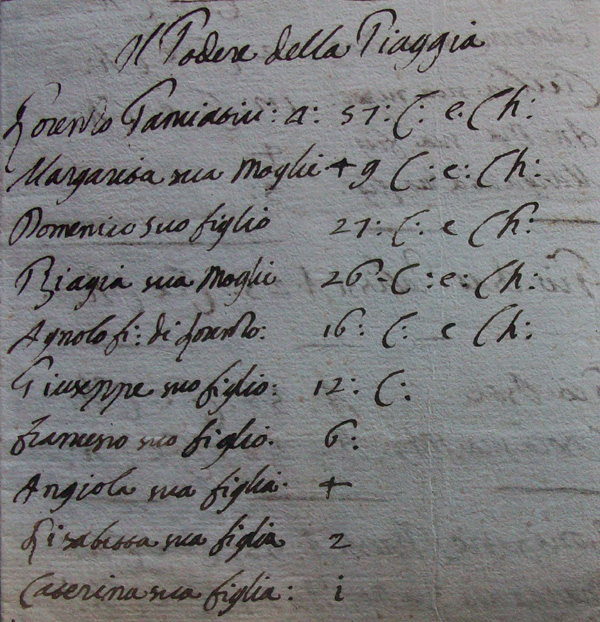 Il Podere della Piaggia
Lorenzo Tamiasiu: a: 57: C: e. Ch:
Margarita sua Moglie 49 C: e: Ch:
Domenico suo figlio 27: C: e Ch:
Biagia sua Moglie 26: C: e: Ch:
Agnolo fi: di Lorenzo: 16: C: e Ch:
Giuseppe suo figlio: 12: C:
Francesco suo figlio. 6:
Angiola sua figlia. 4
Lisabetta sua figlia 2
Caterina sua figlia: i